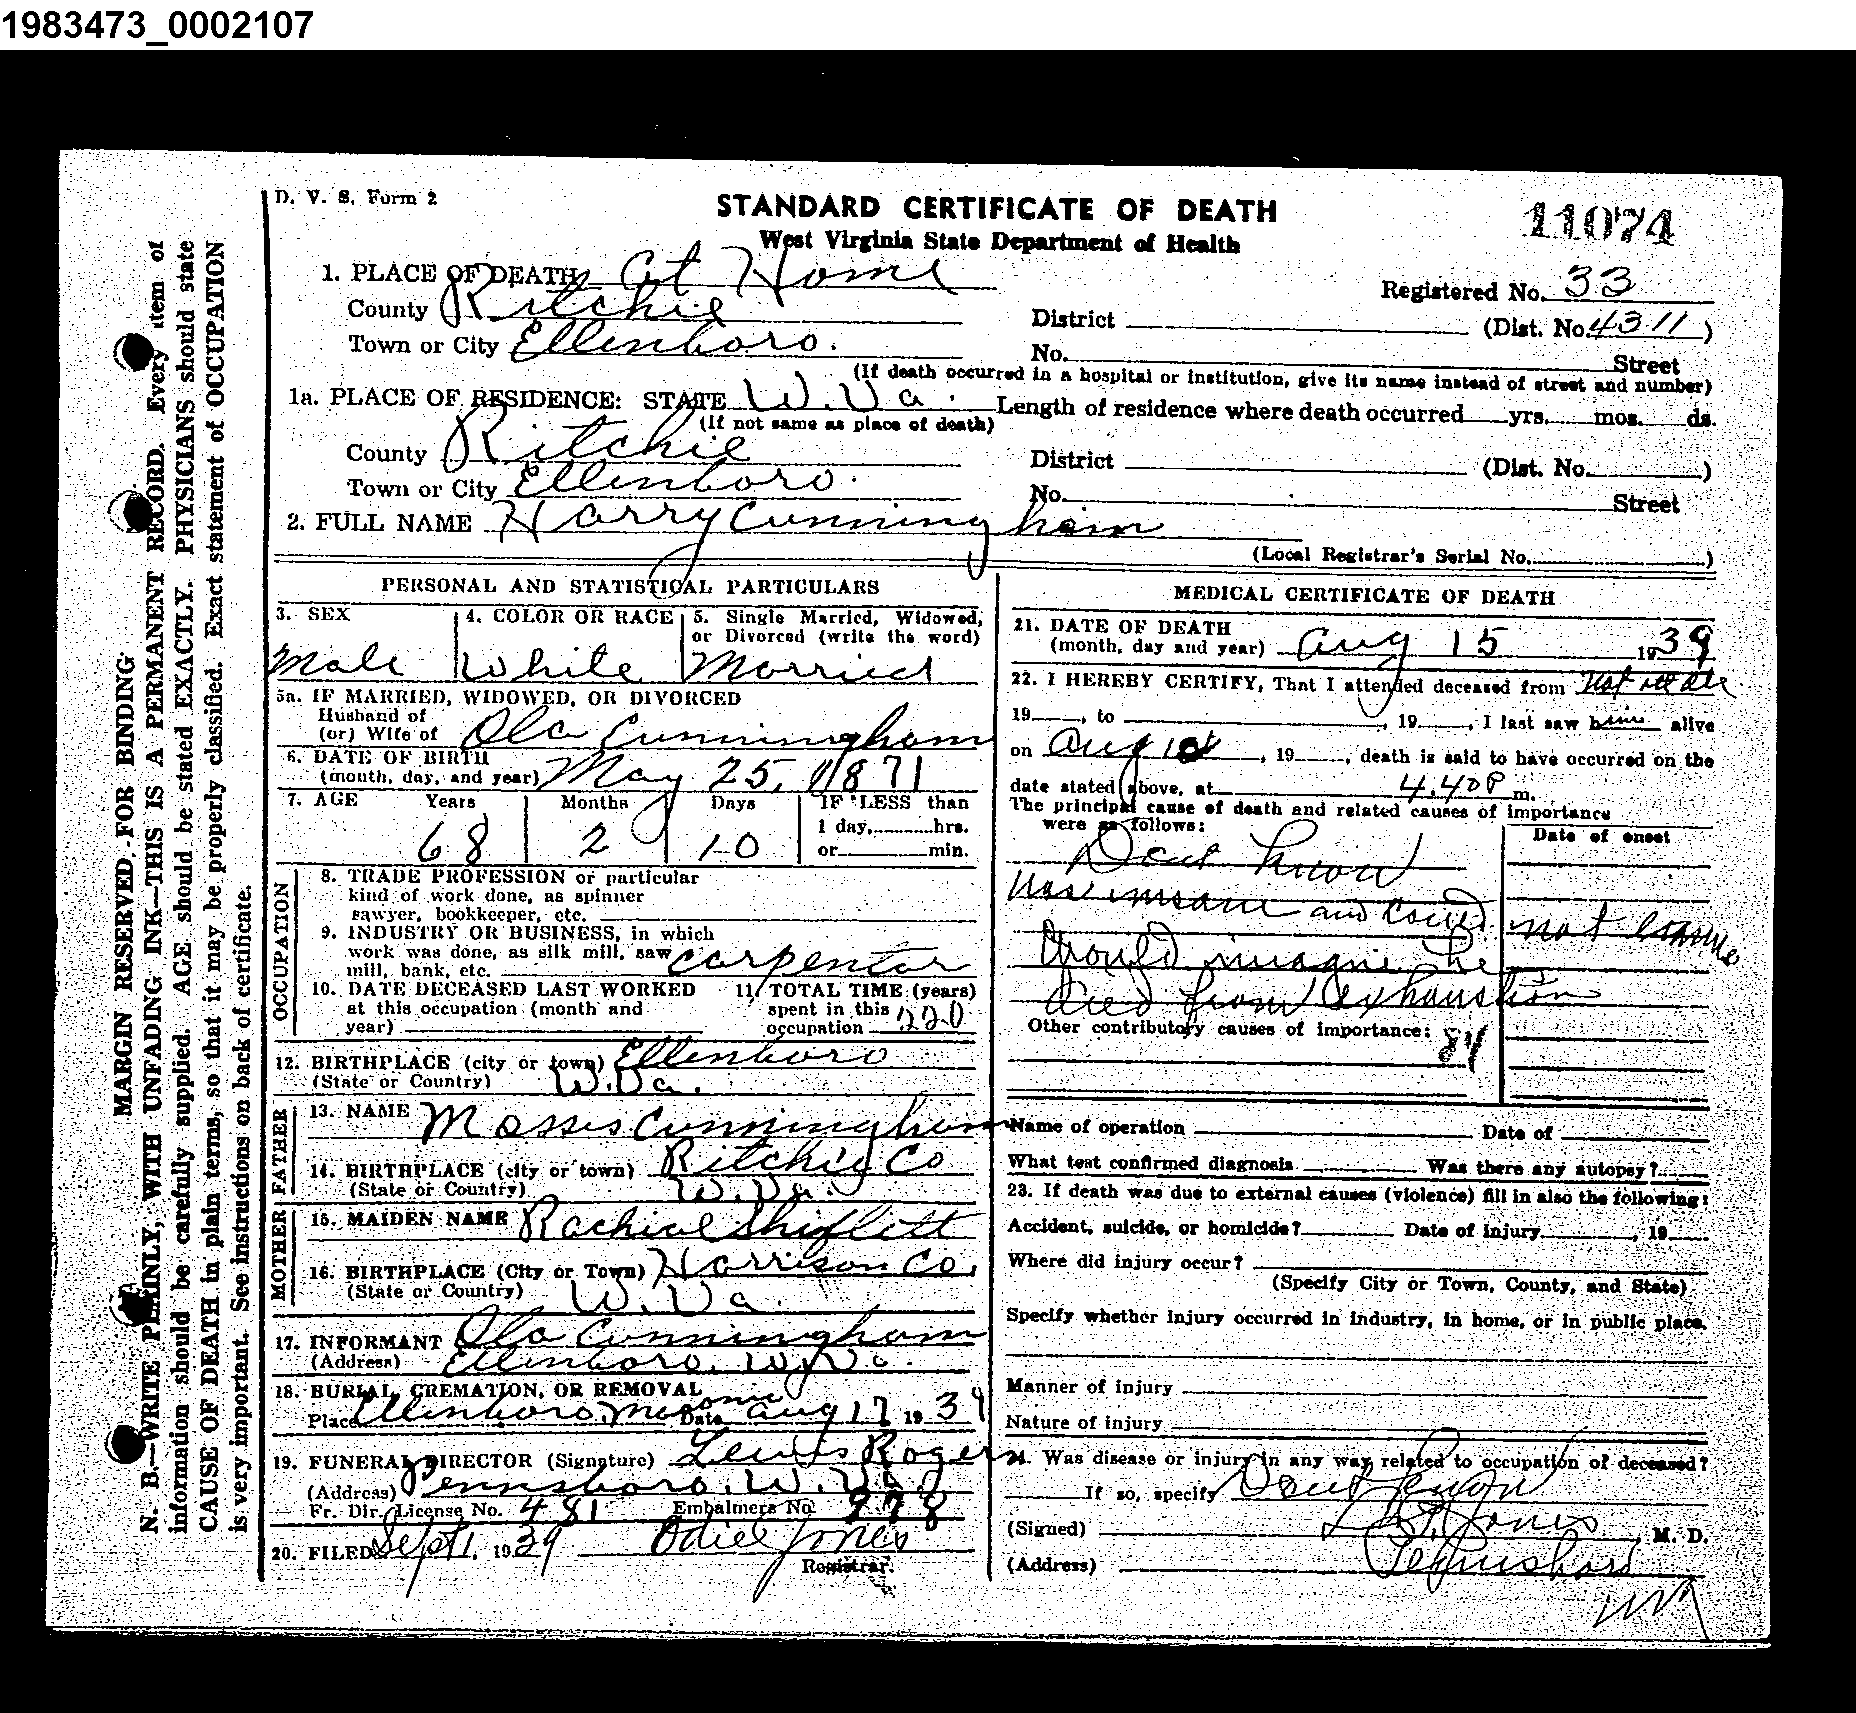 1983473_0002107
D. V. S. Form 2
STANDARD CERTIFICATE OF DEATH
West Virginia State Department of Health
11074
1. PLACE OF DEATH At Home
Registered No. 33
County Ritchie
District (Dist. No. 4311)
Town or City Ellenboro.
No. Street
(If death occurred in a hospital or institution, give its name instead of street and number)
1a. PLACE OF RESIDENCE: STATE W. Va. Length of residence where death occurred yrs. mos. ds.
(If not same as place of death)
County Ritchie
District (Dist. No. )
Town or City Ellenboro.
No. Street
2. FULL NAME Harry Cunningham
(Local Registrar's Serial No. )
PERSONAL AND STATISTICAL PARTICULARS
3. SEX
Male
4. COLOR OR RACE
White
5. Single Married, Widowed,
or Divorced (write the word)
Married
5a. IF MARRIED, WIDOWED, OR DIVORCED
Husband of
(or) Wife of Ola Cunningham
6. DATE OF BIRTH
(month, day, and year) May 25, 1871
7. AGE Years Months Days IF LESS than
68 2 10
1 day, hrs.
or min.
OCCUPATION
8. TRADE PROFESSION or particular
kind of work done, as spinner
sawyer, bookkeeper, etc.
9. INDUSTRY OR BUSINESS, in which
work was done, as silk mill, saw
mill, bank, etc. carpenter
10. DATE DECEASED LAST WORKED
at this occupation (month and
year)
11. TOTAL TIME (years)
spent in this
occupation
12. BIRTHPLACE (city or town) Ellenboro
(State or Country) W. Va.
FATHER
13. NAME Mosses Cunningham
14. BIRTHPLACE (city or town) Ritchie Co
(State or Country) W. Va.
MOTHER
15. MAIDEN NAME Rachiel Shiflett
16. BIRTHPLACE (City or Town) Harrison Co.
(State or Country) W. Va.
17. INFORMANT Ola Cunningham
(Address) Ellenboro. W. Va.
18. BURIAL, CREMATION, OR REMOVAL
Place Ellenboro Masonic Date Aug 17 1939
19. FUNERAL DIRECTOR (Signature) Lewis Rogers
(Address) Pennsboro. W. Va.
Fr. Dir. License No. 481 Embalmers No. 978
20. FILED Sept 1, 1939 Odiel Jones
Registrar.
MEDICAL CERTIFICATE OF DEATH
21. DATE OF DEATH
(month, day and year) Aug 15 1939
22. I HEREBY CERTIFY, That I attended deceased from Not at all
19 , to , 19 , I last saw him alive
on Aug , 19 , death is said to have occurred on the
date stated above, at 4.40P m.
The principal cause of death and related causes of importance
were as follows:
Date of onset
Dont Know
was insane and could not examine
Would imagine he
died from exhaustion
Other contributory causes of importance:
84
Name of operation Date of
What test confirmed diagnosis Was there any autopsy?
23. If death was due to external causes (violence) fill in also the following:
Accident, suicide, or homicide? Date of injury , 19
Where did injury occur?
(Specify City or Town, County, and State)
Specify whether injury occurred in industry, in home, or in public place.
Manner of injury
Nature of injury
24. Was disease or injury in any way related to occupation of deceased?
If so, specify Dont Know
(Signed) Jones, M. D.
(Address) Pennsboro
W Va
MARGIN RESERVED FOR BINDING
N. B.—WRITE PLAINLY, WITH UNFADING INK—THIS IS A PERMANENT RECORD. Every item of
information should be carefully supplied. AGE should be stated EXACTLY. PHYSICIANS should state
CAUSE OF DEATH in plain terms, so that it may be properly classified. Exact statement of OCCUPATION
is very important. See instructions on back of certificate.